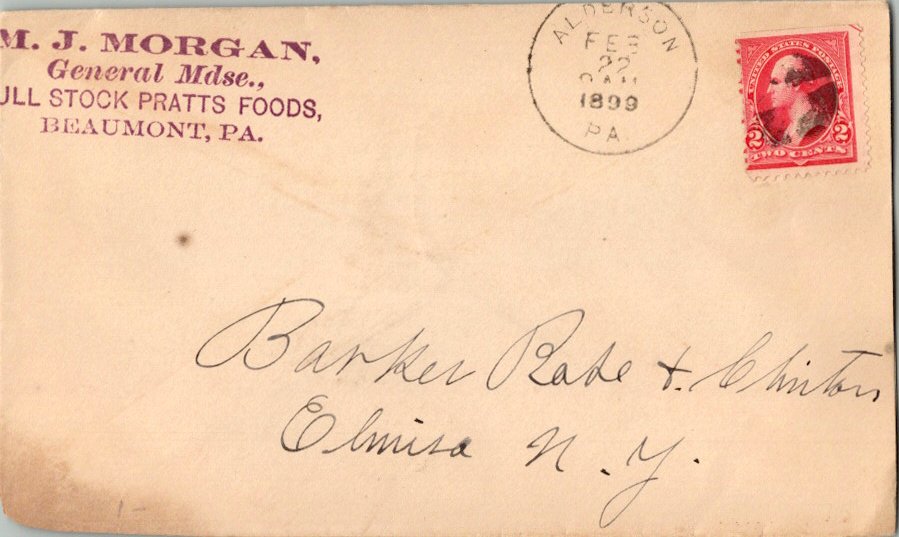 M. J. MORGAN,
General Mdse.,
ULL STOCK PRATTS FOODS,
BEAUMONT, PA.
ALDERSON
FEB
22
9 AM
1899
PA.
UNITED STATES POSTAGE
2 2
TWO CENTS
Barker Rose & Clinton
Elmira N. Y.